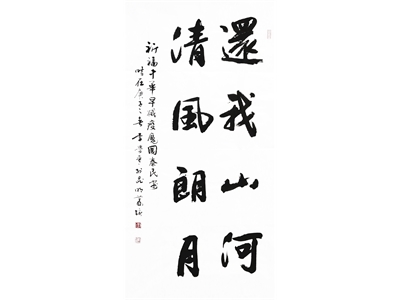 還我山河
清風朗月
祈福中華早滅疫魔國泰民安
時在庚子之春